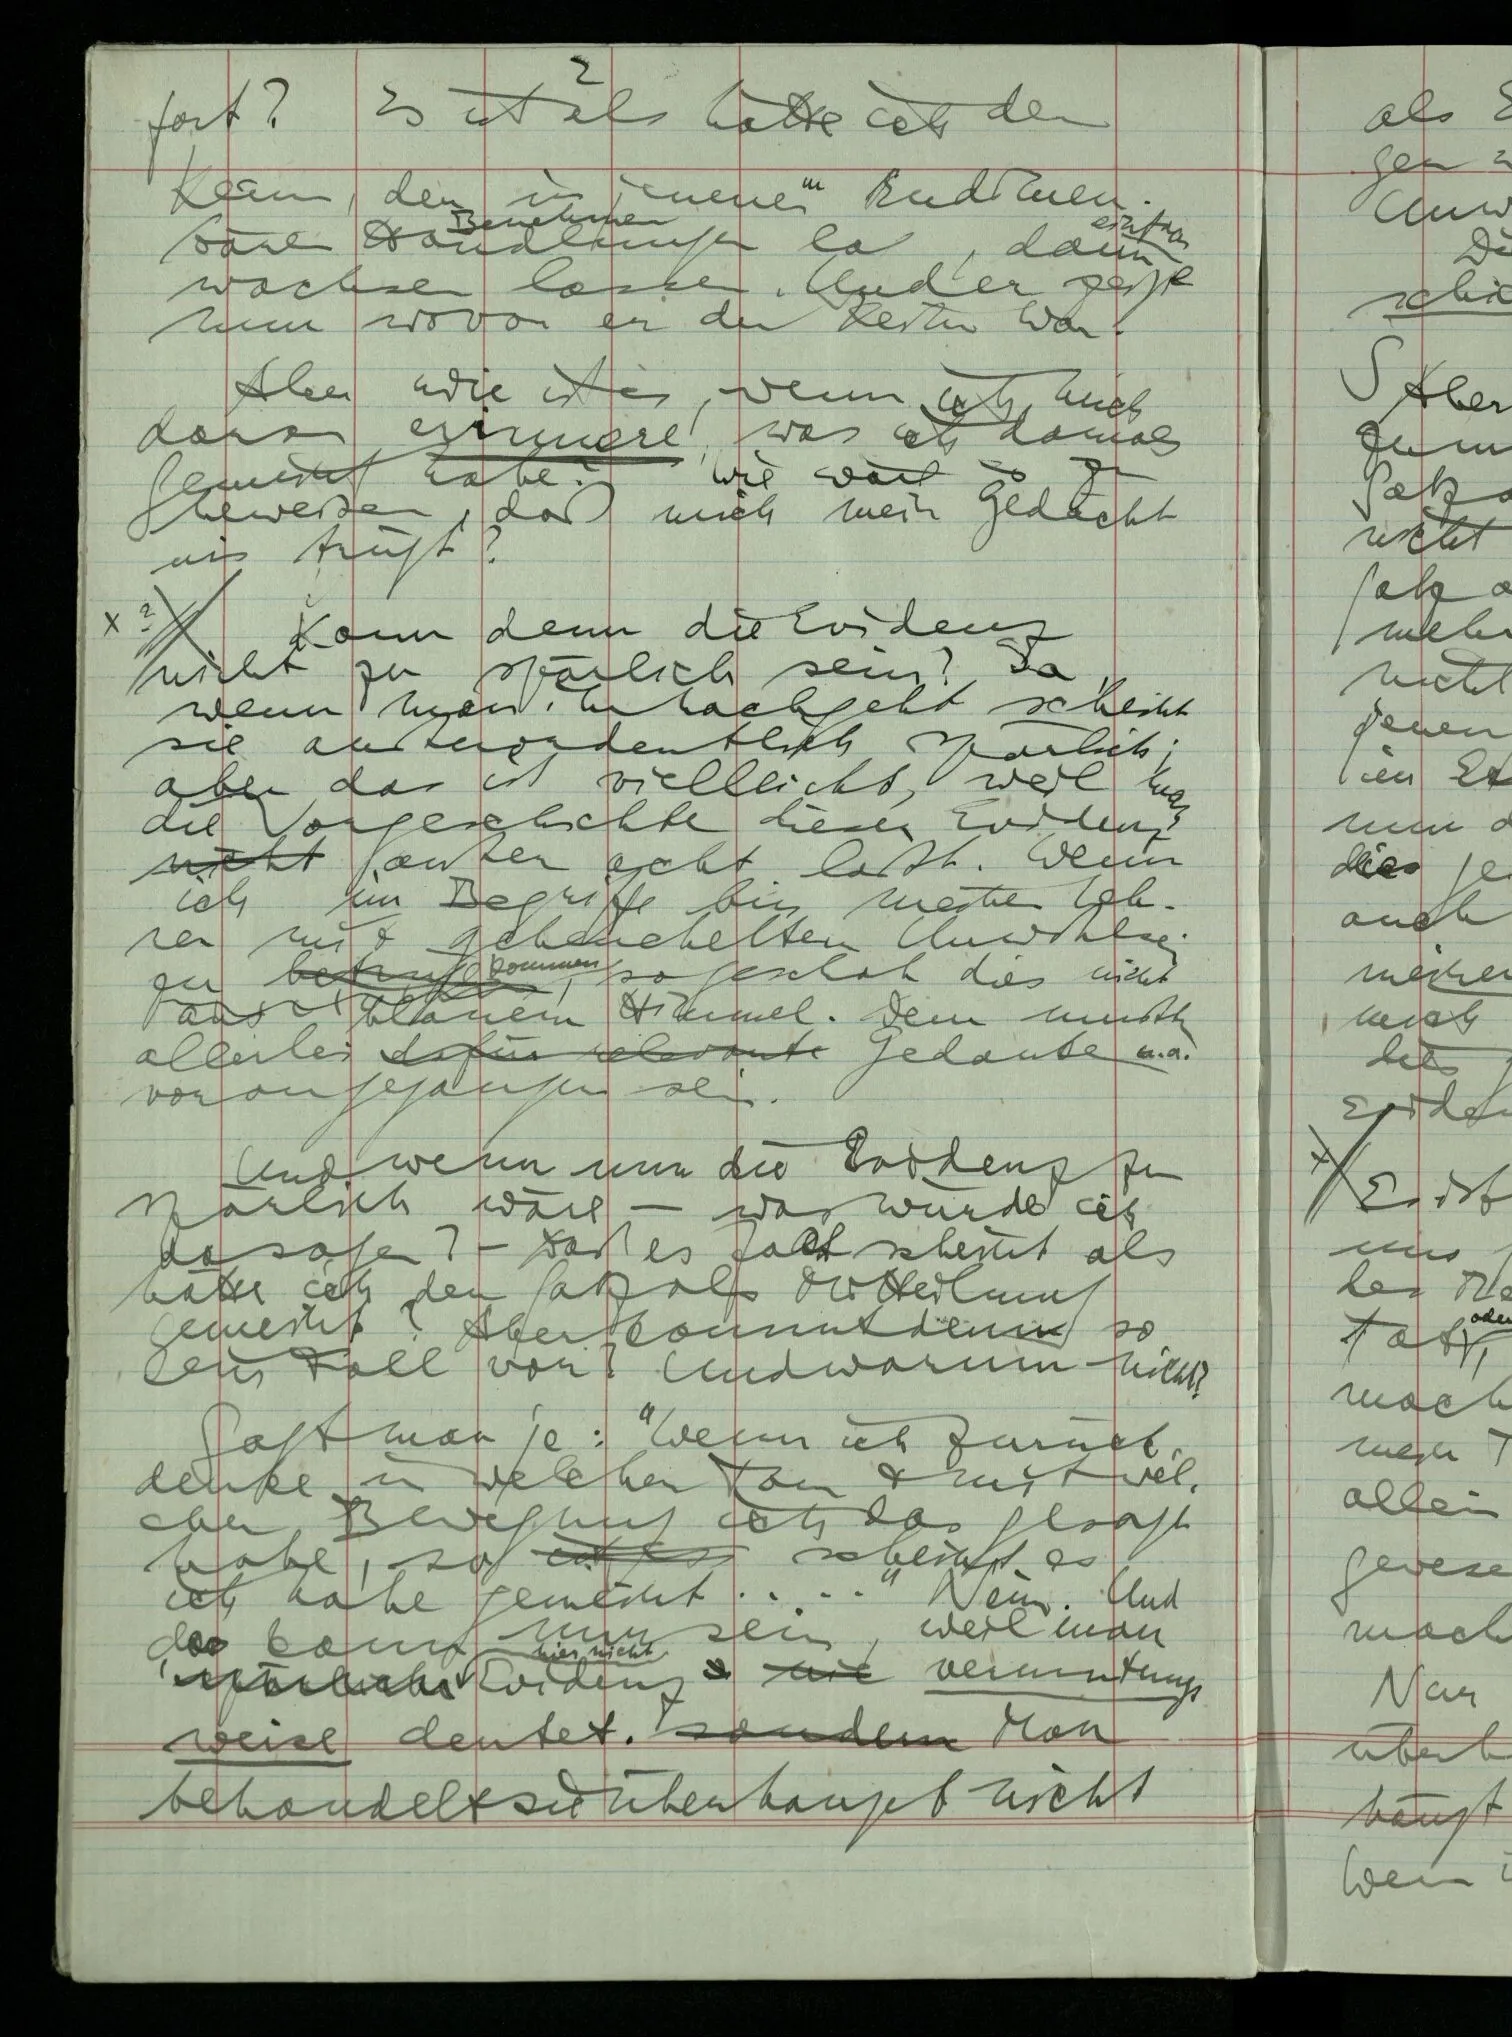 2
fort? Es ist als hätte ich den
Keim, der in jenem rudimen-
Benehmen einfach
tären Handlungen lag, dann
wachsen lassen. Und er zeigte
nun wovon er der Keim war.
Aber wie ist es, wenn ich mich
daran erinnere, was ich damals
gemeint habe? Wie wäre es zu
beweisen, daß mich mein Gedächt
nis trügt?
x ? Kann denn die Evidenz
nicht zu spärlich sein? Ja,
wenn man ihr nachgeht scheint
sie außerordentlich spärlich;
aber das ist vielleicht, weil man
die Vorgeschichte dieser Evidenz
nicht außer acht läßt. Wenn
ich im Begriffe bin meinen Leh-
rer mit geheucheltem Unwohlsein
kommen
zu betrügen, so geschah dies nicht
aus blauem Himmel. Dem mußten
allerlei dafür relevante Gedanken u.a.
vorangegangen sein.
Und wenn nun die Evidenz zu
spärlich wäre — was würde ich
da sagen? – Daß es fast scheint als
hätte ich den Satz als Mitteilung
gemeint? Aber kommt denn so
ein Fall vor? Und warum nicht?
Sagt man je: "Wenn ich zurück-
denke in welchem Ton & mit wel-
cher Bewegung ich das gesagt
habe, so scheint es
ich habe gemeint . . . . ." Nein. Und
das kann nun sein, weil man
hier nicht
spärliche Evidenz nie vermutungs
weise deutet. sondern Man
behandelt sie überhaupt nicht
als
gen
Aber
nicht
mehr
nicht
jenen
nun
dies
auch
meinen
mich
x Es ist
uns
oder
mach
mein
allein
gewese
mach
Nur
überh
hängt
Wenn